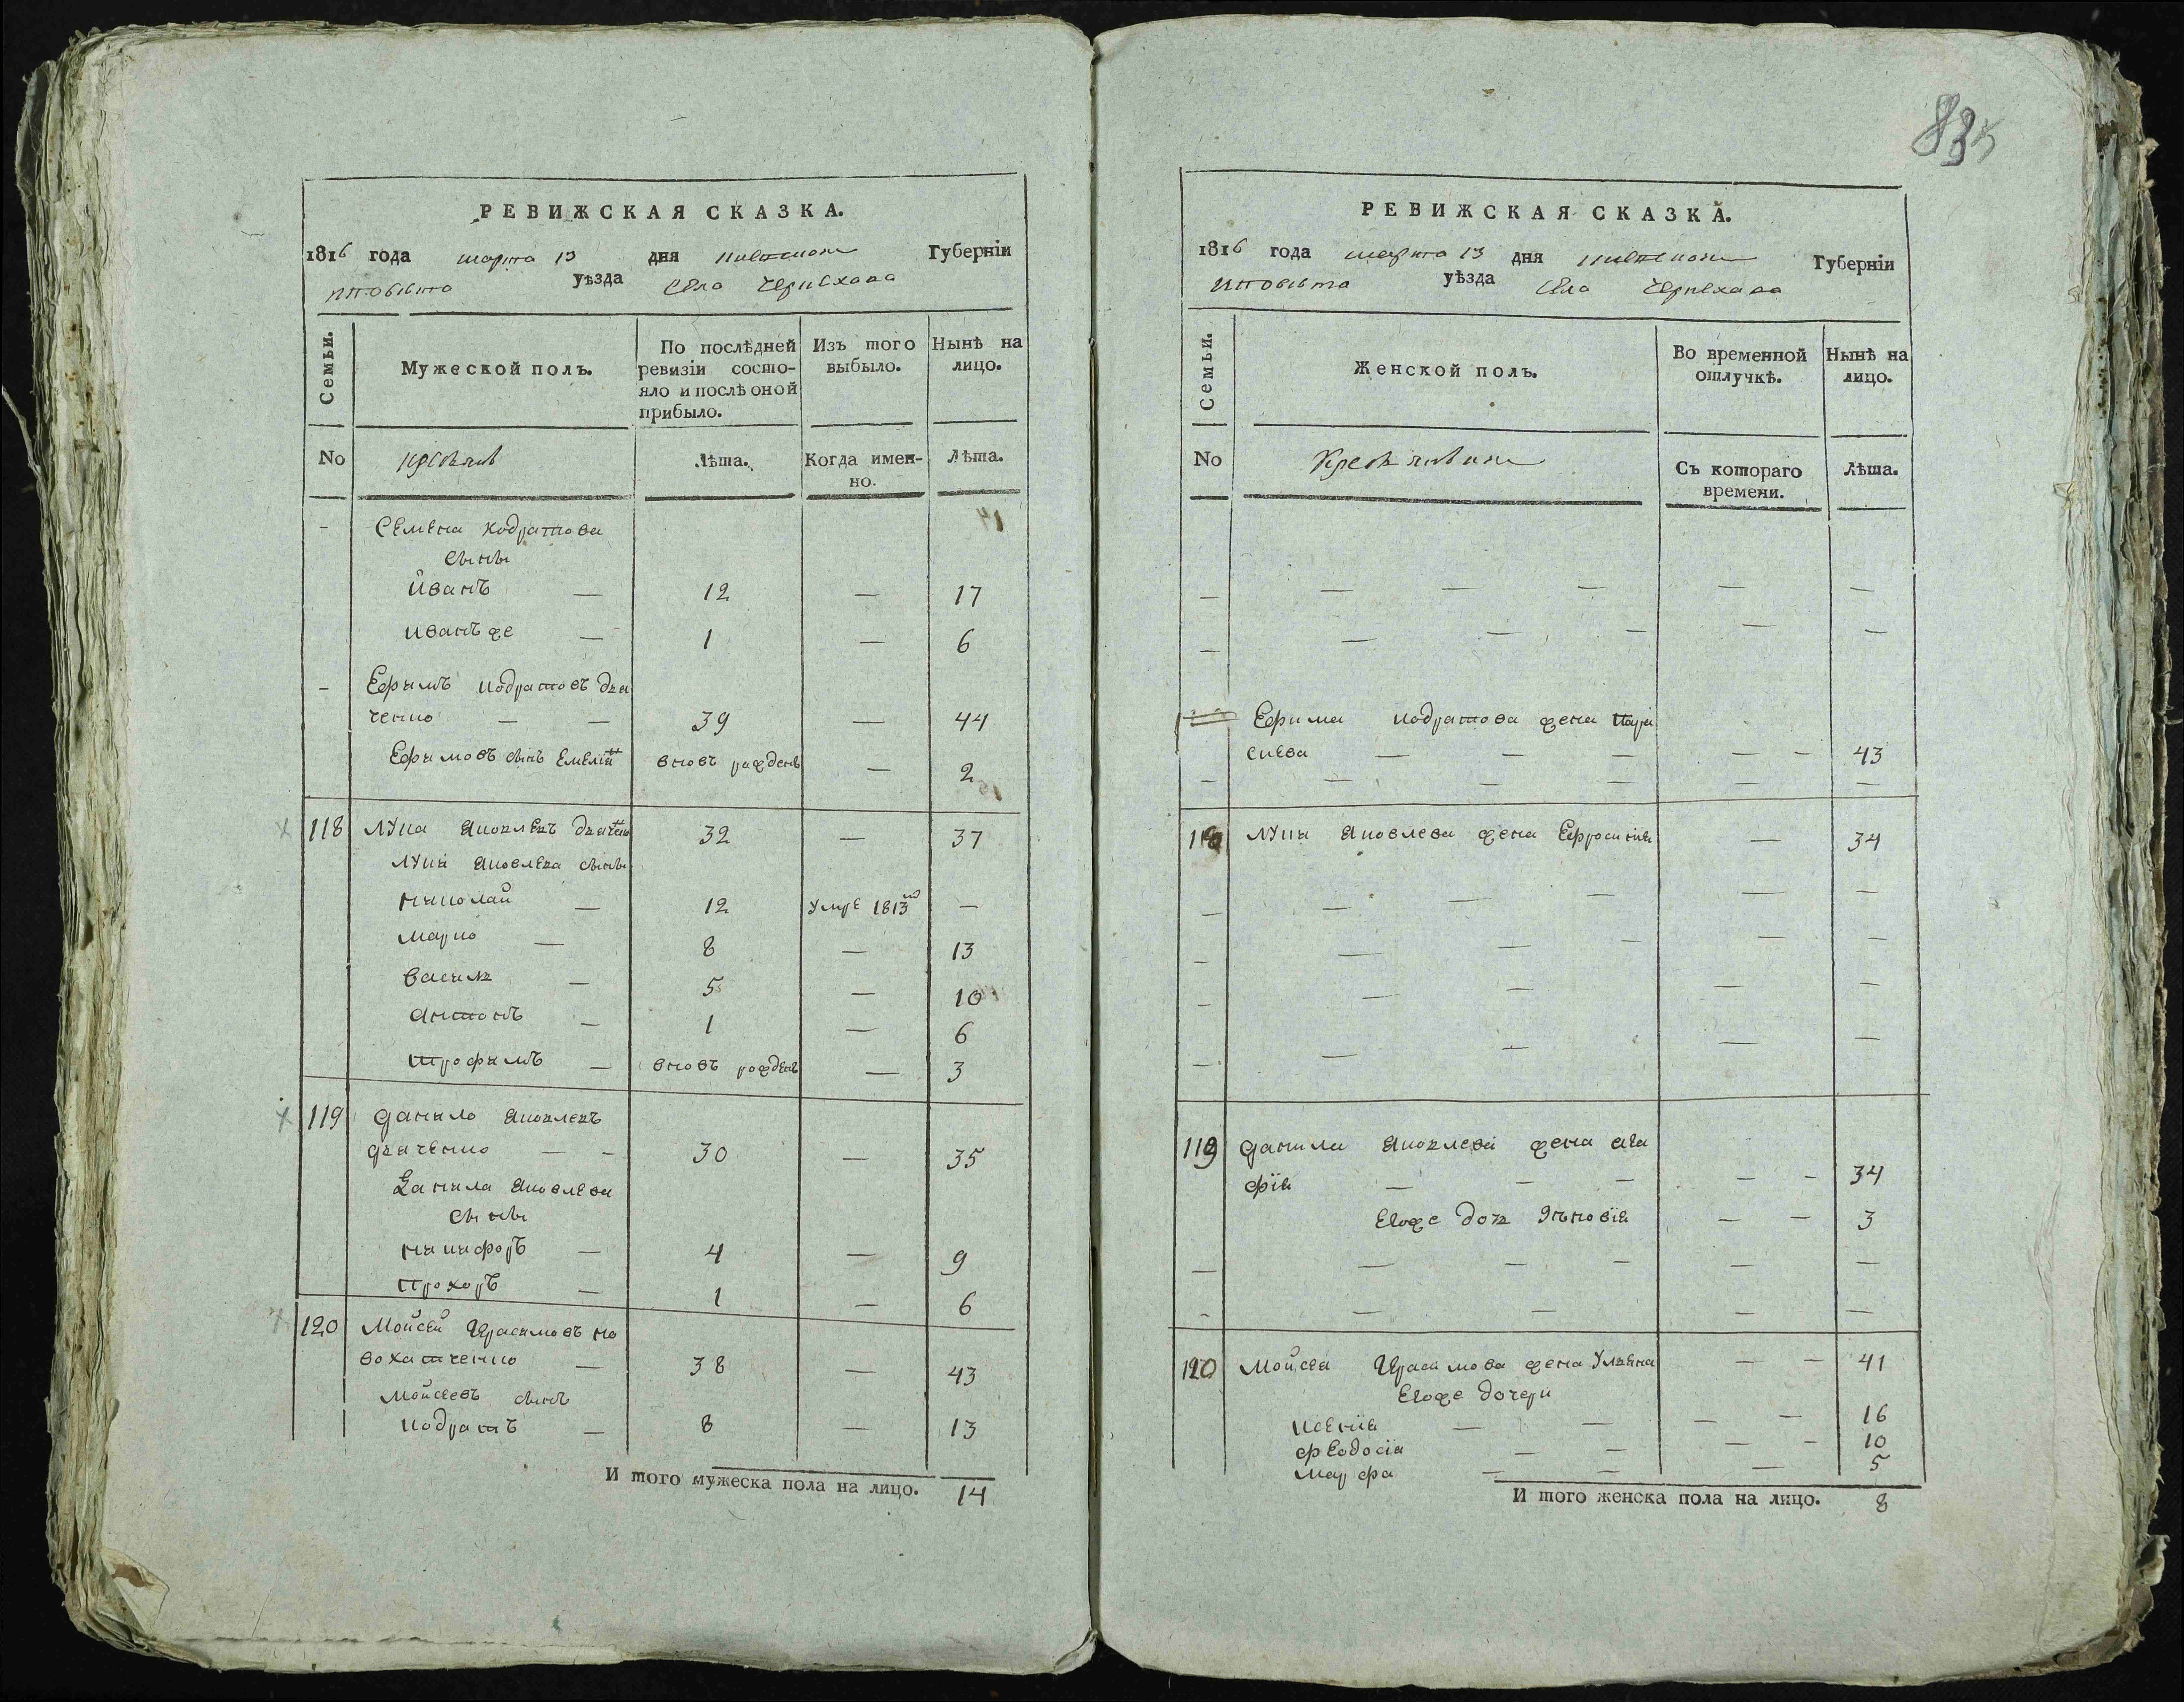 835
РЕВИЖСКАЯ СКАЗКА.
1816 года марта 13 дня Киевской Губерніи
уѣзда села Черняхова
Семьи.
Мужеской полъ.
По послѣдней ревизіи состо-
яло и послѣ оной
прибыло.
Изъ того
выбыло.
Нынѣ на
лицо.
No
Лѣта.
Когда имен-
но.
Лѣта.
Семена Кодратова
сыны
Иванъ — 12 — 17
Иванъ же — 1 — 6
- Ефимъ Кодратовъ Дя
ченко — — 39 — 44
Ефимовъ сынъ Емелiанъ вновь рожденъ — 2
118 Лука Яковлевъ Дяченко 32 — 37
Луки Яковлева сыны
Николай — 12 умре 1813го —
Марко — 8 — 13
Василь — 5 — 10
Антонъ — 1 — 6
Трофимъ — вновь рожденъ — 3
119 Данило Яковлевъ
Дяченко — - 30 — 35
Данила Яковлева
сыны
Никифоръ — 4 — 9
Прохоръ — 1 — 6
120 Мойсей Герасимовъ Но
вохатченко — 38 — 43
Мойсеевъ сынъ
Кодратъ — 8 — 13
И того мужеска пола на лицо. 14
РЕВИЖСКАЯ СКАЗКА.
1816 года марта 13 дня Киевской Губерніи
уѣзда села Черняхова
Семьи.
Женской полъ.
Во временной
отлучкѣ.
Нынѣ на
лицо.
No
Съ котораго
времени.
Лѣта.
Ефима Кодратова жена Пара
скева — — — — - 43
118 Луки Яковлева жена Ефросинія — 34
119 Данила Яковлева жена Ага
фія — — — — - 34
Егоже дочь Зѣновія — — 3
120 Мойсея Герасимова жена Уляна — - 41
Егоже дочери
Ксенія — — — — 16
Феодосія — — — - 10
Марфа — — — 5
И того женска пола на лицо. 8